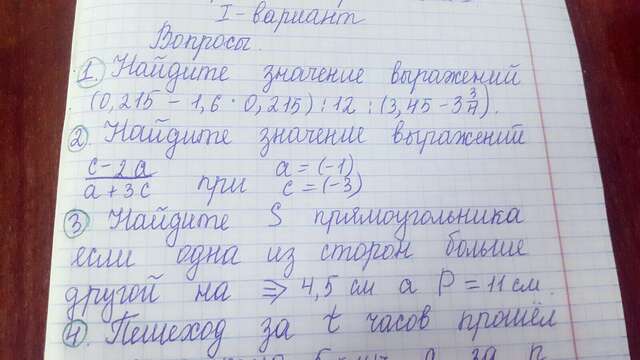 I-вариант
Вопросы.
1. Найдите значение выражений
(0,215 - 1,6 · 0,215) : 12 : (3,45 - 3 3/4).
2. Найдите значение выражений
c-2a / a+3c при a=(-1) c=(-3)
3. Найдите S прямоугольника
если одна из сторон больше
другой на ⇒ 4,5 см а P = 11 см.
4. Пешеход за t часов прошёл
а за